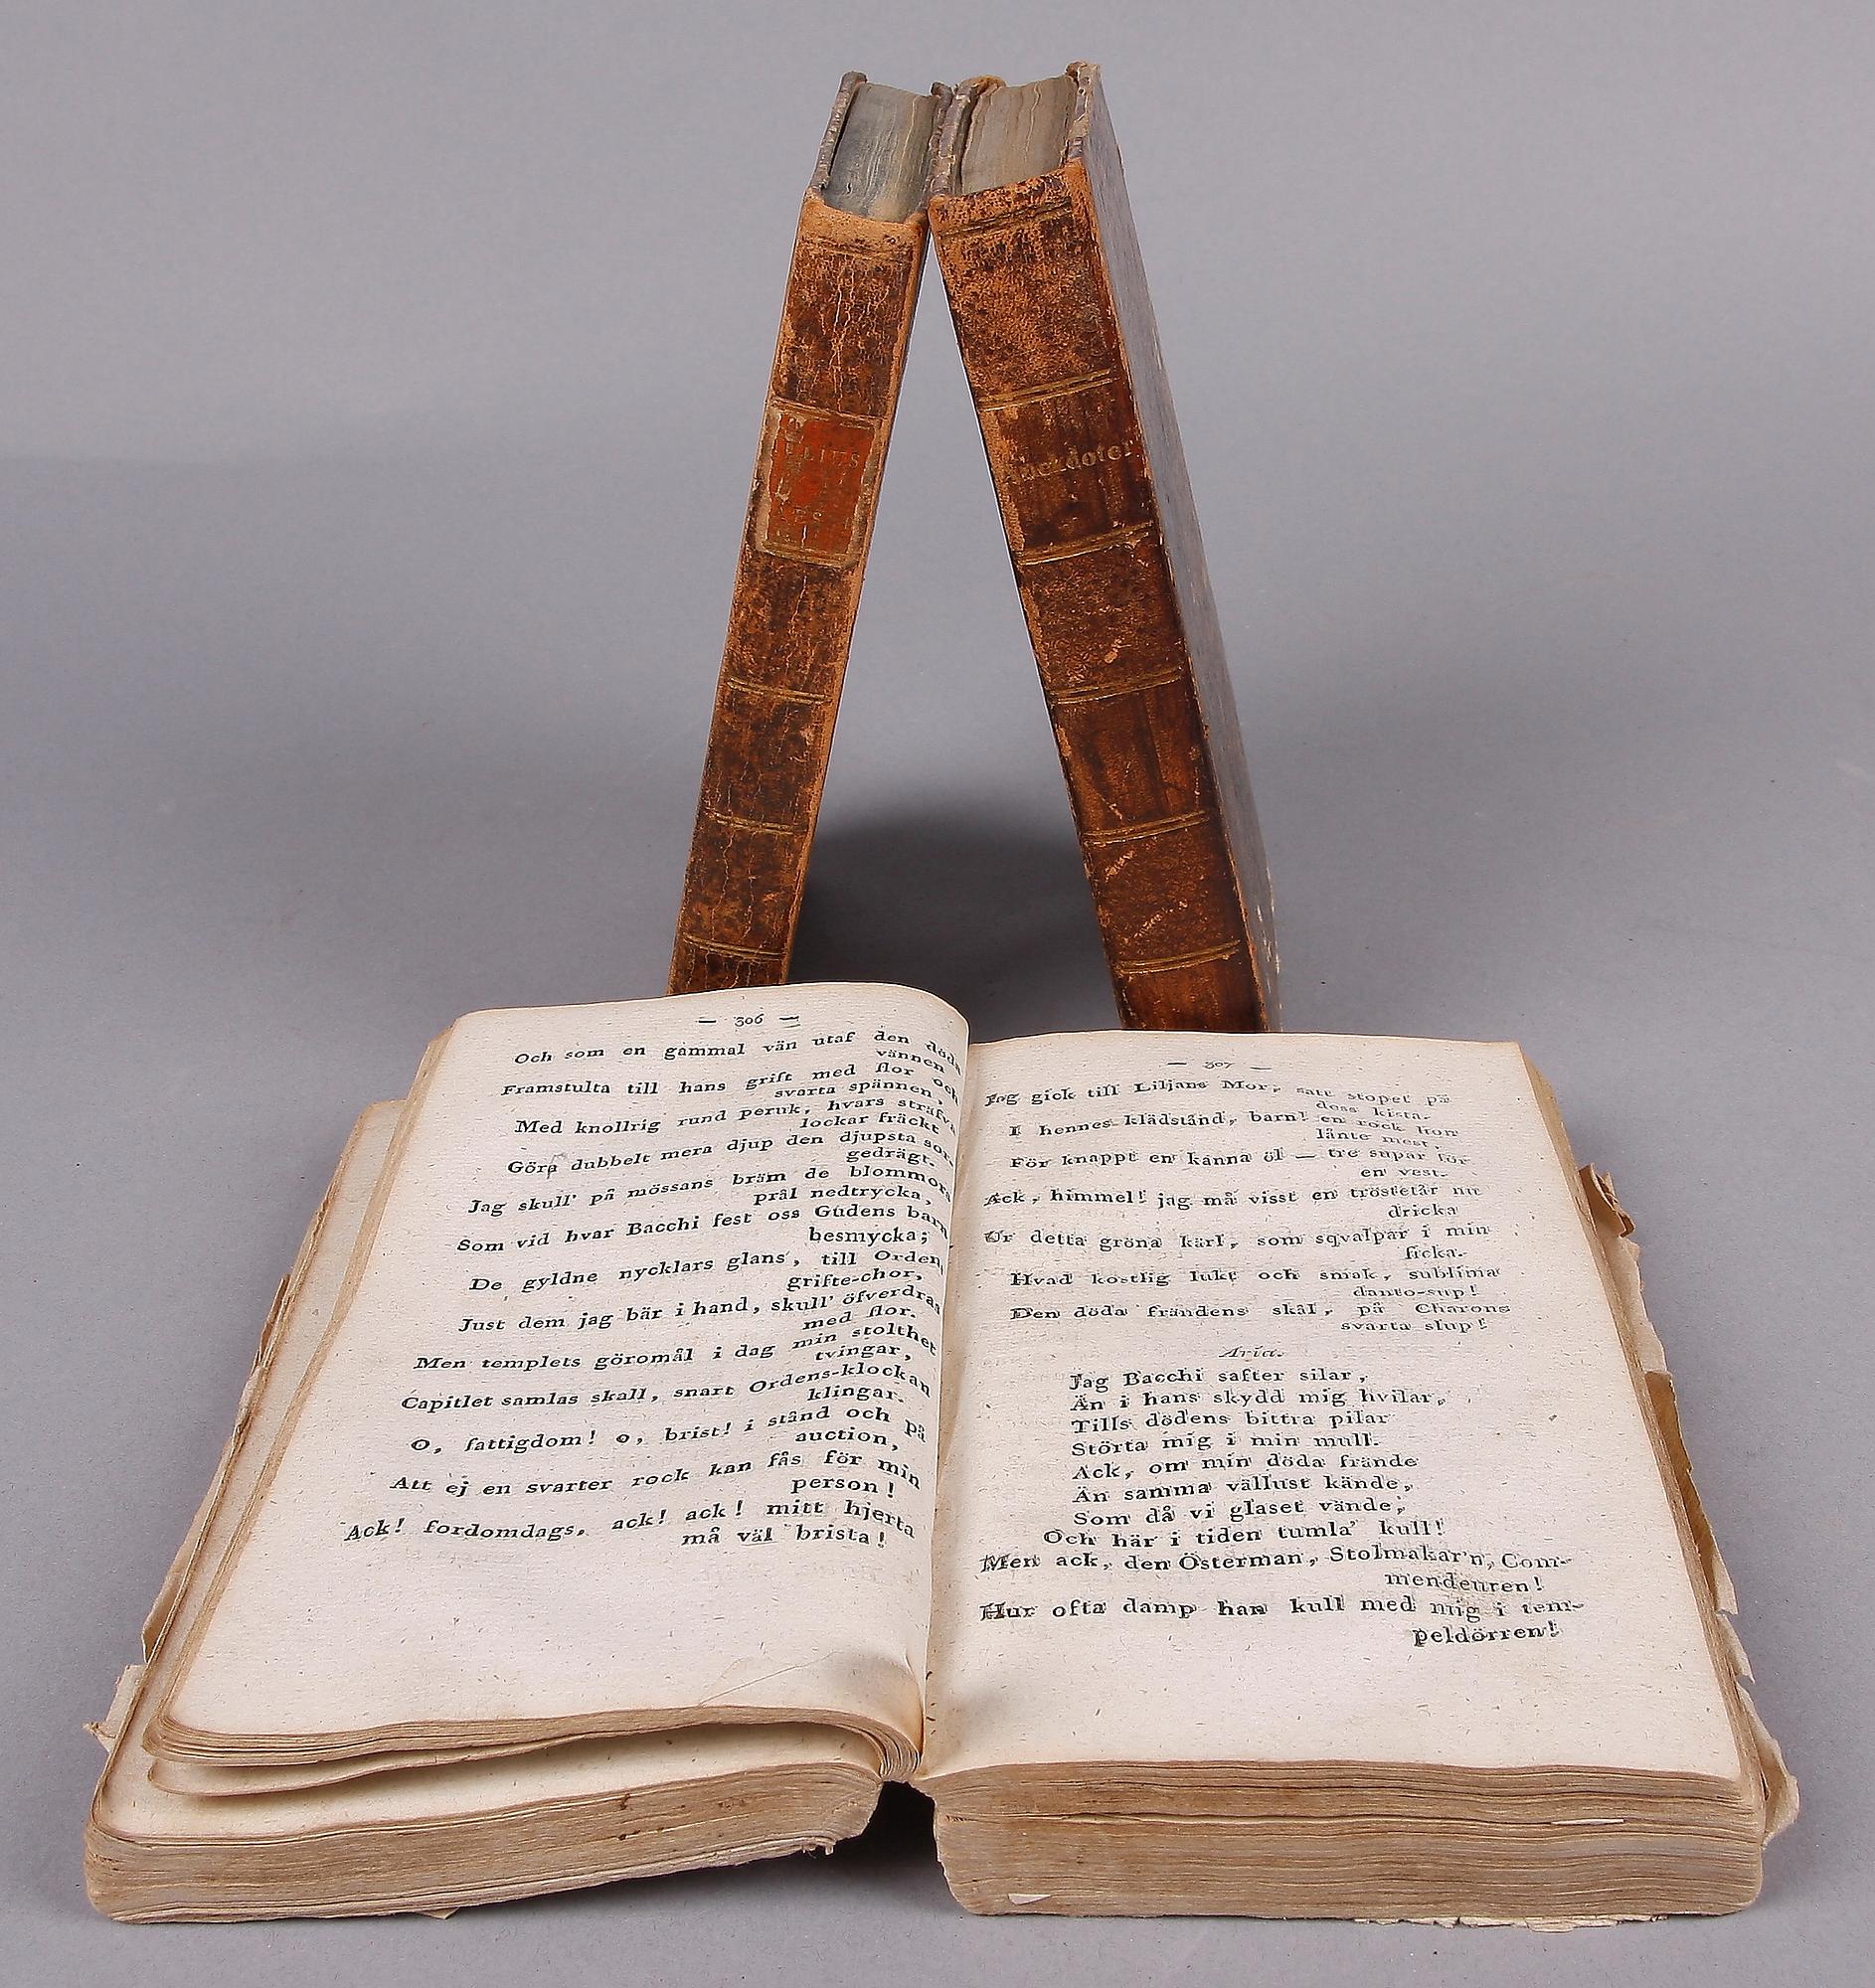 Anekdoter
— 306 —
Och som en gammal vän utaf den döda
vännen
Framstulta till hans grift med flor och
svarta spännen,
Med knollrig rund peruk, hvars sträfva
lockar fräckt
Göra dubbelt mera djup den djupsta sor-
gedrägt.
Jag skull' på mössans bräm de blommors
prål nedtrycka,
Som vid hvar Bacchi fest oss Gudens barn
besmycka;
De gyldne nycklars glans, till Orden,
grifte-chor,
Just dem jag bär i hand, skull' öfverdras
med flor.
Men templets göromål i dag min stolthet
tvingar,
Capitlet samlas skall, snart Ordens-klockan
klingar.
O, fattigdom! o, brist! i stånd och på
auction,
Att ej en svarter rock kan fås för min
person!
Ack! fordomdags, ack! ack! mitt hjerta
må väl brista!
— 307 —
Jag gick till Liljans Mor, satt stopet på
dess kista.
I hennes klädstånd, barn! en rock hon
lånte mest,
För knappt en kanna öl — tre supar för
en vest.
Ack, himmel! jag må visst en tröstetår nu
dricka
Ur detta gröna kärl, som sqvalpar i min
ficka.
Hvad kostlig lukt och smak, sublima
danto-sup!
Den döda frändens skål, på Charons
svarta slup!
Aria.
Jag Bacchi safter silar,
Än i hans skydd mig hvilar,
Tills dödens bittra pilar
Störta mig i min mull.
Ack, om min döda frände
Än samma vällust kände,
Som då vi glaset vände,
Och här i tiden tumla' kull!
Men ack, den Österman, Stolmakar'n, Com-
mendeuren!
Hur ofta damp han kull med mig i tem-
peldörren!